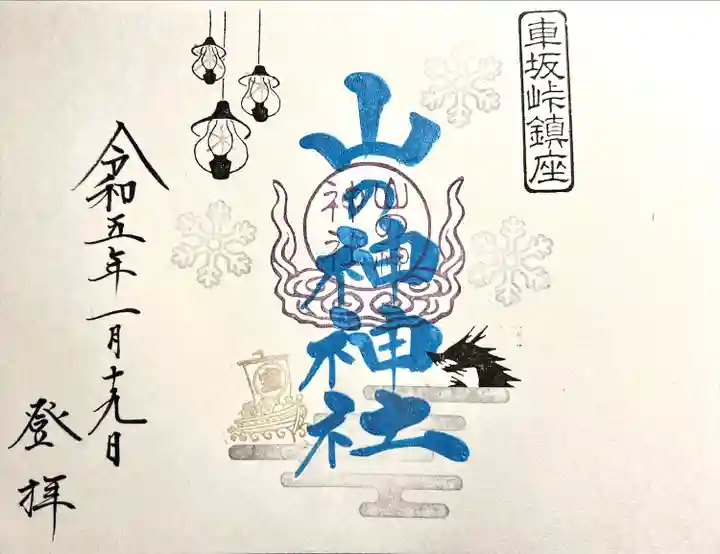 車坂峠鎮座
山の神神社
令和五年一月十九日
登拝